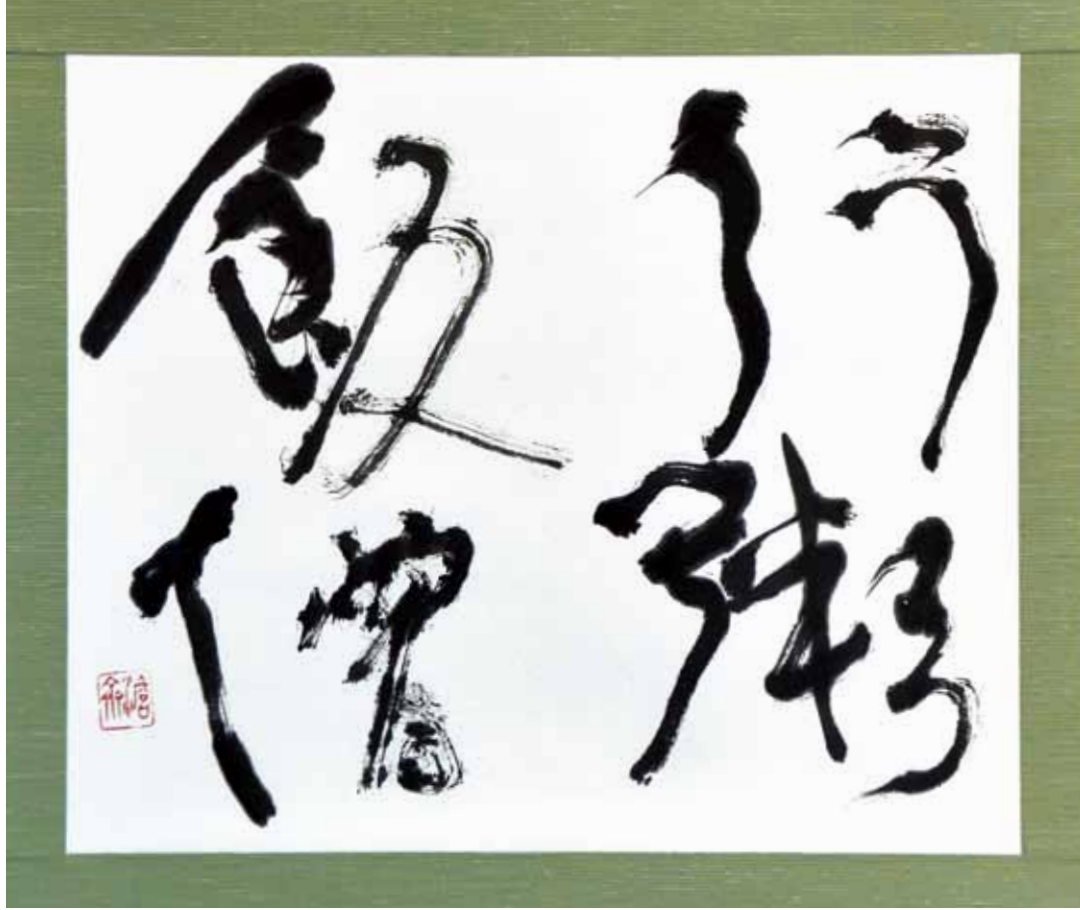 行粥
飯僧